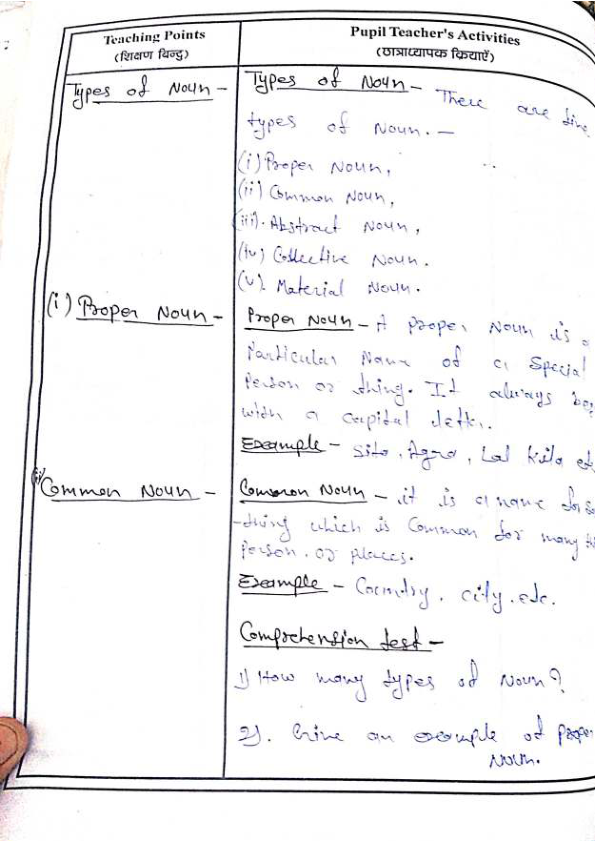 Teaching Points
(शिक्षण बिन्दु)
Pupil Teacher's Activities
(छात्राध्यापक क्रियाएँ)
Types of Noun -
Types of Noun - There are five
types of Noun. -
(i) Proper Noun,
(ii) Common Noun,
(iii). Abstract Noun,
(iv) Collective Noun.
(v). Material Noun.
(i) Proper Noun -
Proper Noun - A proper Noun is a
Particular Name of a Special
Person or thing. It always
with a capital
Example - Sita, Agra, Lal Kila etc
(ii) Common Noun -
Common Noun - it is a name for
-thing which is Common for many
Person. or places.
Example - Country, city. etc.
Comprehension test -
1) How many types of Noun?
2). Give an example of proper
Noun.